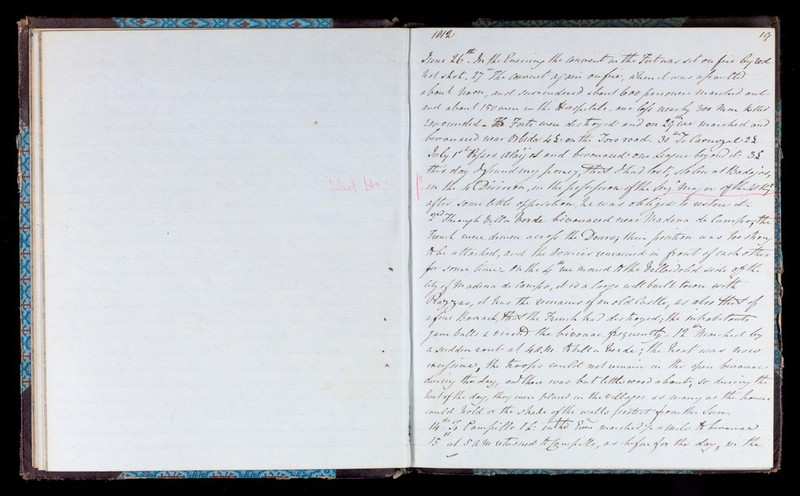 1812
19
June 26th. In the Evening the convent in the Fort was set on fire by red
hot shot. 27th The convent again on fire, when it was assaulted
about Noon, and surrendered about 600 prisoners marched out
and about 150 men in the Hospital. our loss nearly 300 Men killed
& wounded. The Forts were destroyed and on 29th we marched and
bivouaced near Orbida 4£ on the Toro road. 30th To 2£
July 1st Passed Alaijos and bivouaced one League beyond it 3£
this day I found my poney, that I had lost, stolen at Badajos,
in the 4th Division, in the possession of the Serj Major of the Regt
after some little opposition, he was obliged to restore it.
2nd Through Villa Verde bivouaced near Madina de Campo, the
French were driven across the Douro, their position was too strong
to be attacked, and the Armies remained in front of each other
for some time. On the 4th we moved to the Valladolid side of the
City of Madina de Campo, it is a large well built town with
Piazzas, it has the remains of an old Castle, as also that of
a fine Barrack that the French had destroyed; the inhabitants
gave balls & visited the bivouac frequently. 12th Marched by
a sudden rout at 4 to Villa Verde; the heat was now
excessive, the troops could not remain in the open bivouac
during the day, and there was but little wood about, so during the
heat of the day, they were placed in the villages as many as the houses
could hold or the shade of the walls protect from the Sun.
14th To Campillo 1£. in the Eveng marched ½ a mile to bivouac
15th at 5 A M returned to Campillo, as before for the day, in the